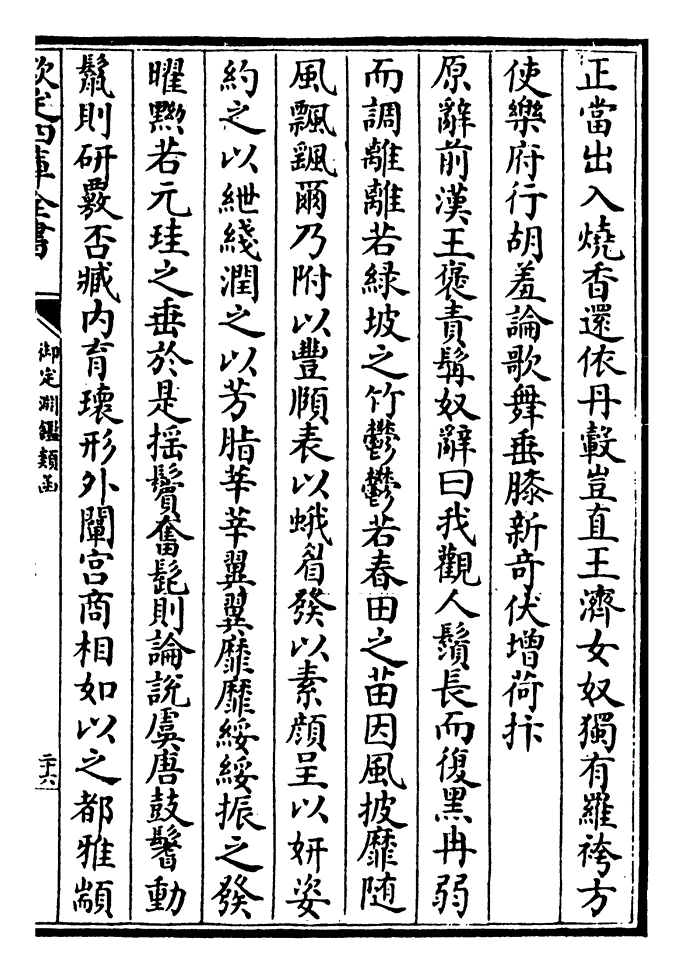 正當出入燒香還依丹轂豈直王濟女奴獨有羅袴方
使樂府行胡羞論歌舞垂膝新奇伏增荷抃
原辭前漢王褒責髯奴辭曰我觀人鬚長而復黑冉弱
而調離離若緑坡之竹鬱鬱若春田之苗因風披靡随
風飄颻爾乃附以豐頤表以蛾眉發以素顔呈以妍姿
約之以紲綫潤之以芳脂莘莘翼翼靡靡綏綏振之發
曜黝若元珪之垂於是揺鬢奮髭則論說虞唐鼓鬐動
鬣則研覈否臧内育瓌形外闡宫商相如以之都雅顓
欽定四庫全書
御定淵鑑類函
二十六